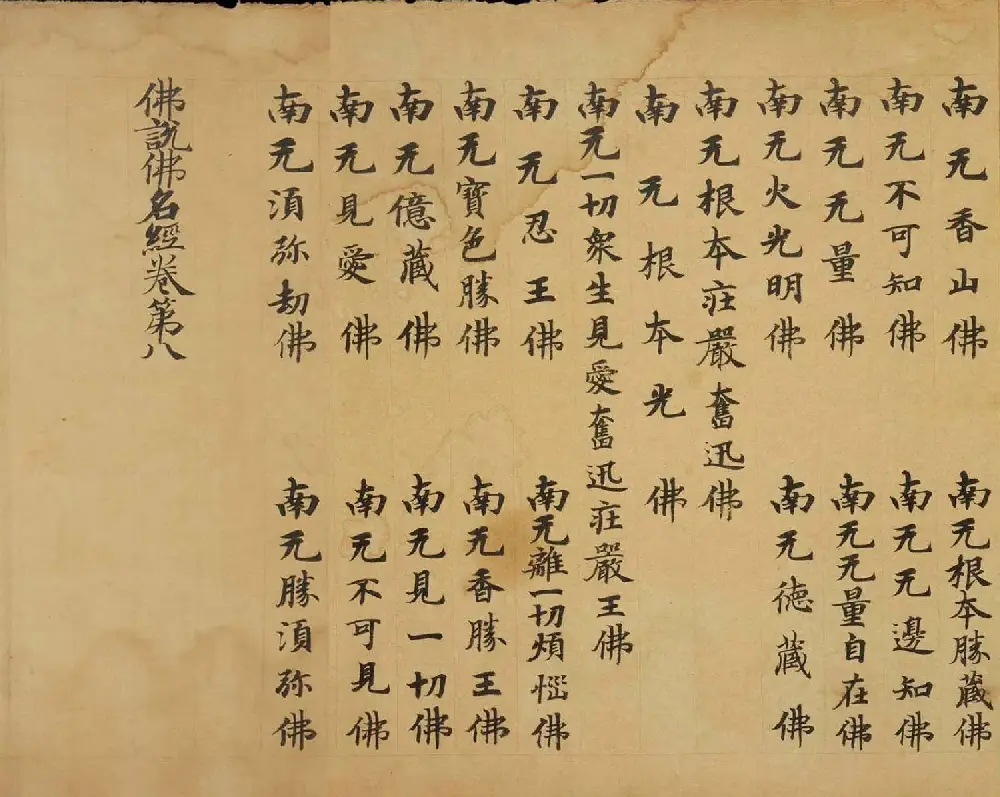 南无香山佛 南无根本勝藏佛
南无不可知佛 南无无邊知佛
南无无量佛 南无无量自在佛
南无火光明佛 南无德藏佛
南无根本莊嚴奮迅佛
南无根本光佛
南无一切衆生見愛奮迅莊嚴王佛
南无忍王佛 南无離一切煩惱佛
南无寶色勝佛 南无香勝王佛
南无億藏佛 南无見一切佛
南无見愛佛 南无不可見佛
南无須弥劫佛 南无勝須弥佛
佛說佛名經卷第八